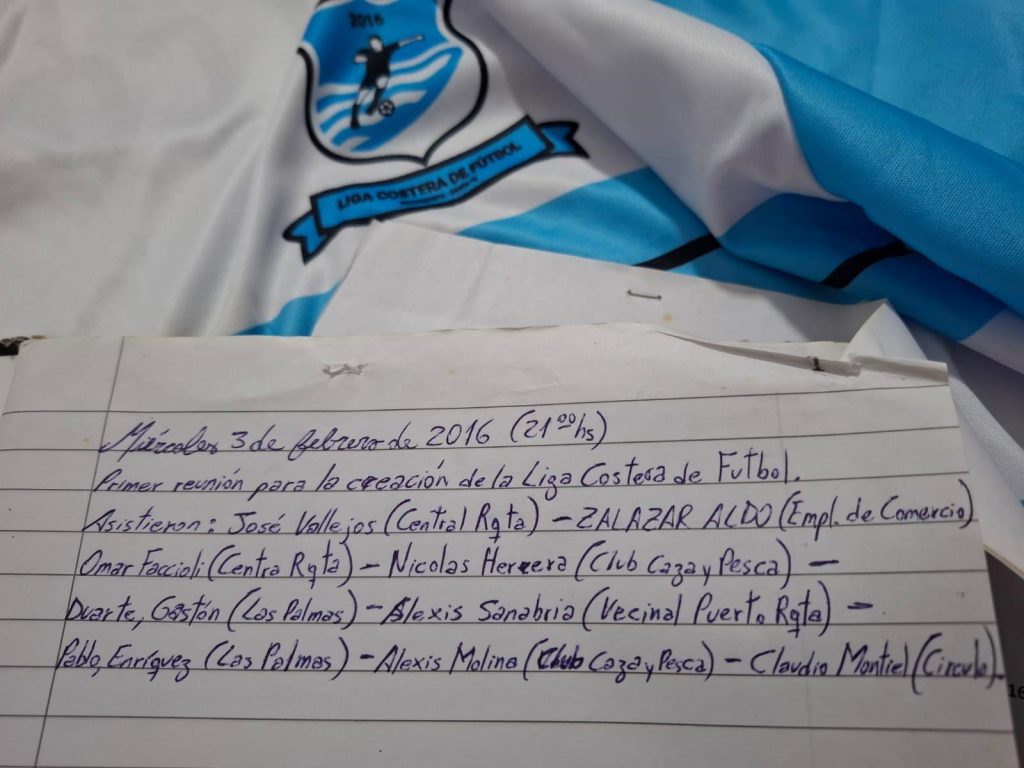 2016
LIGA COSTERA DE FÚTBOL
Miércoles 3 de febrero de 2016 (21⁰⁰hs)
Primer reunión para la creación de la Liga Costera de Futbol.
Asistieron: José Vallejos (Central Rqta) - ZALAZAR ALDO (Empl. de Comercio)
Omar Faccioli (Centra Rqta) - Nicolas Herrera (Club Caza y Pesca) -
Duarte, Gastón (Las Palmas) - Alexis Sanabria (Vecinal Puerto Rqta) -
Pablo, Enríquez (Las Palmas) - Alexis Molina (Club Caza y Pesca) - Claudio Montiel (Circulo).
16